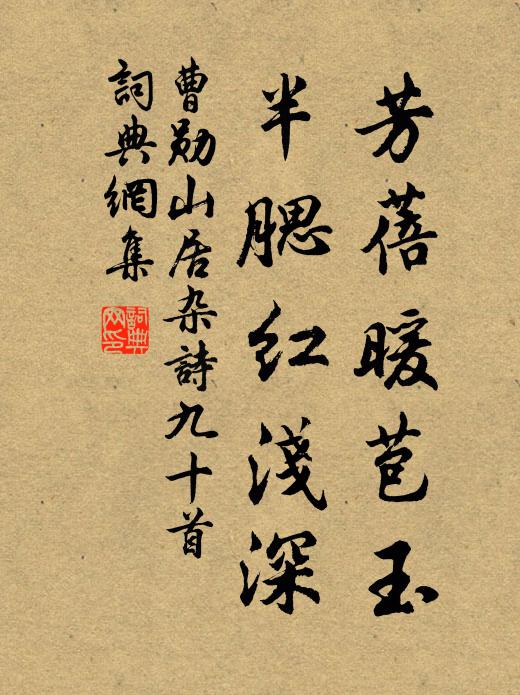 芳蓓暖苞玉
半腮红淺深
曹勛山居杂詩九十首
詞典網集
詞典网印